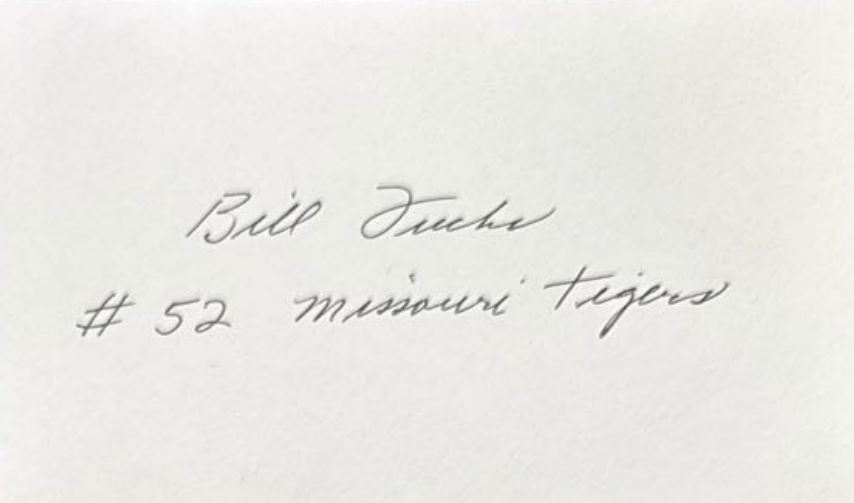 Bill Fuchs
# 52 Missouri Tigers